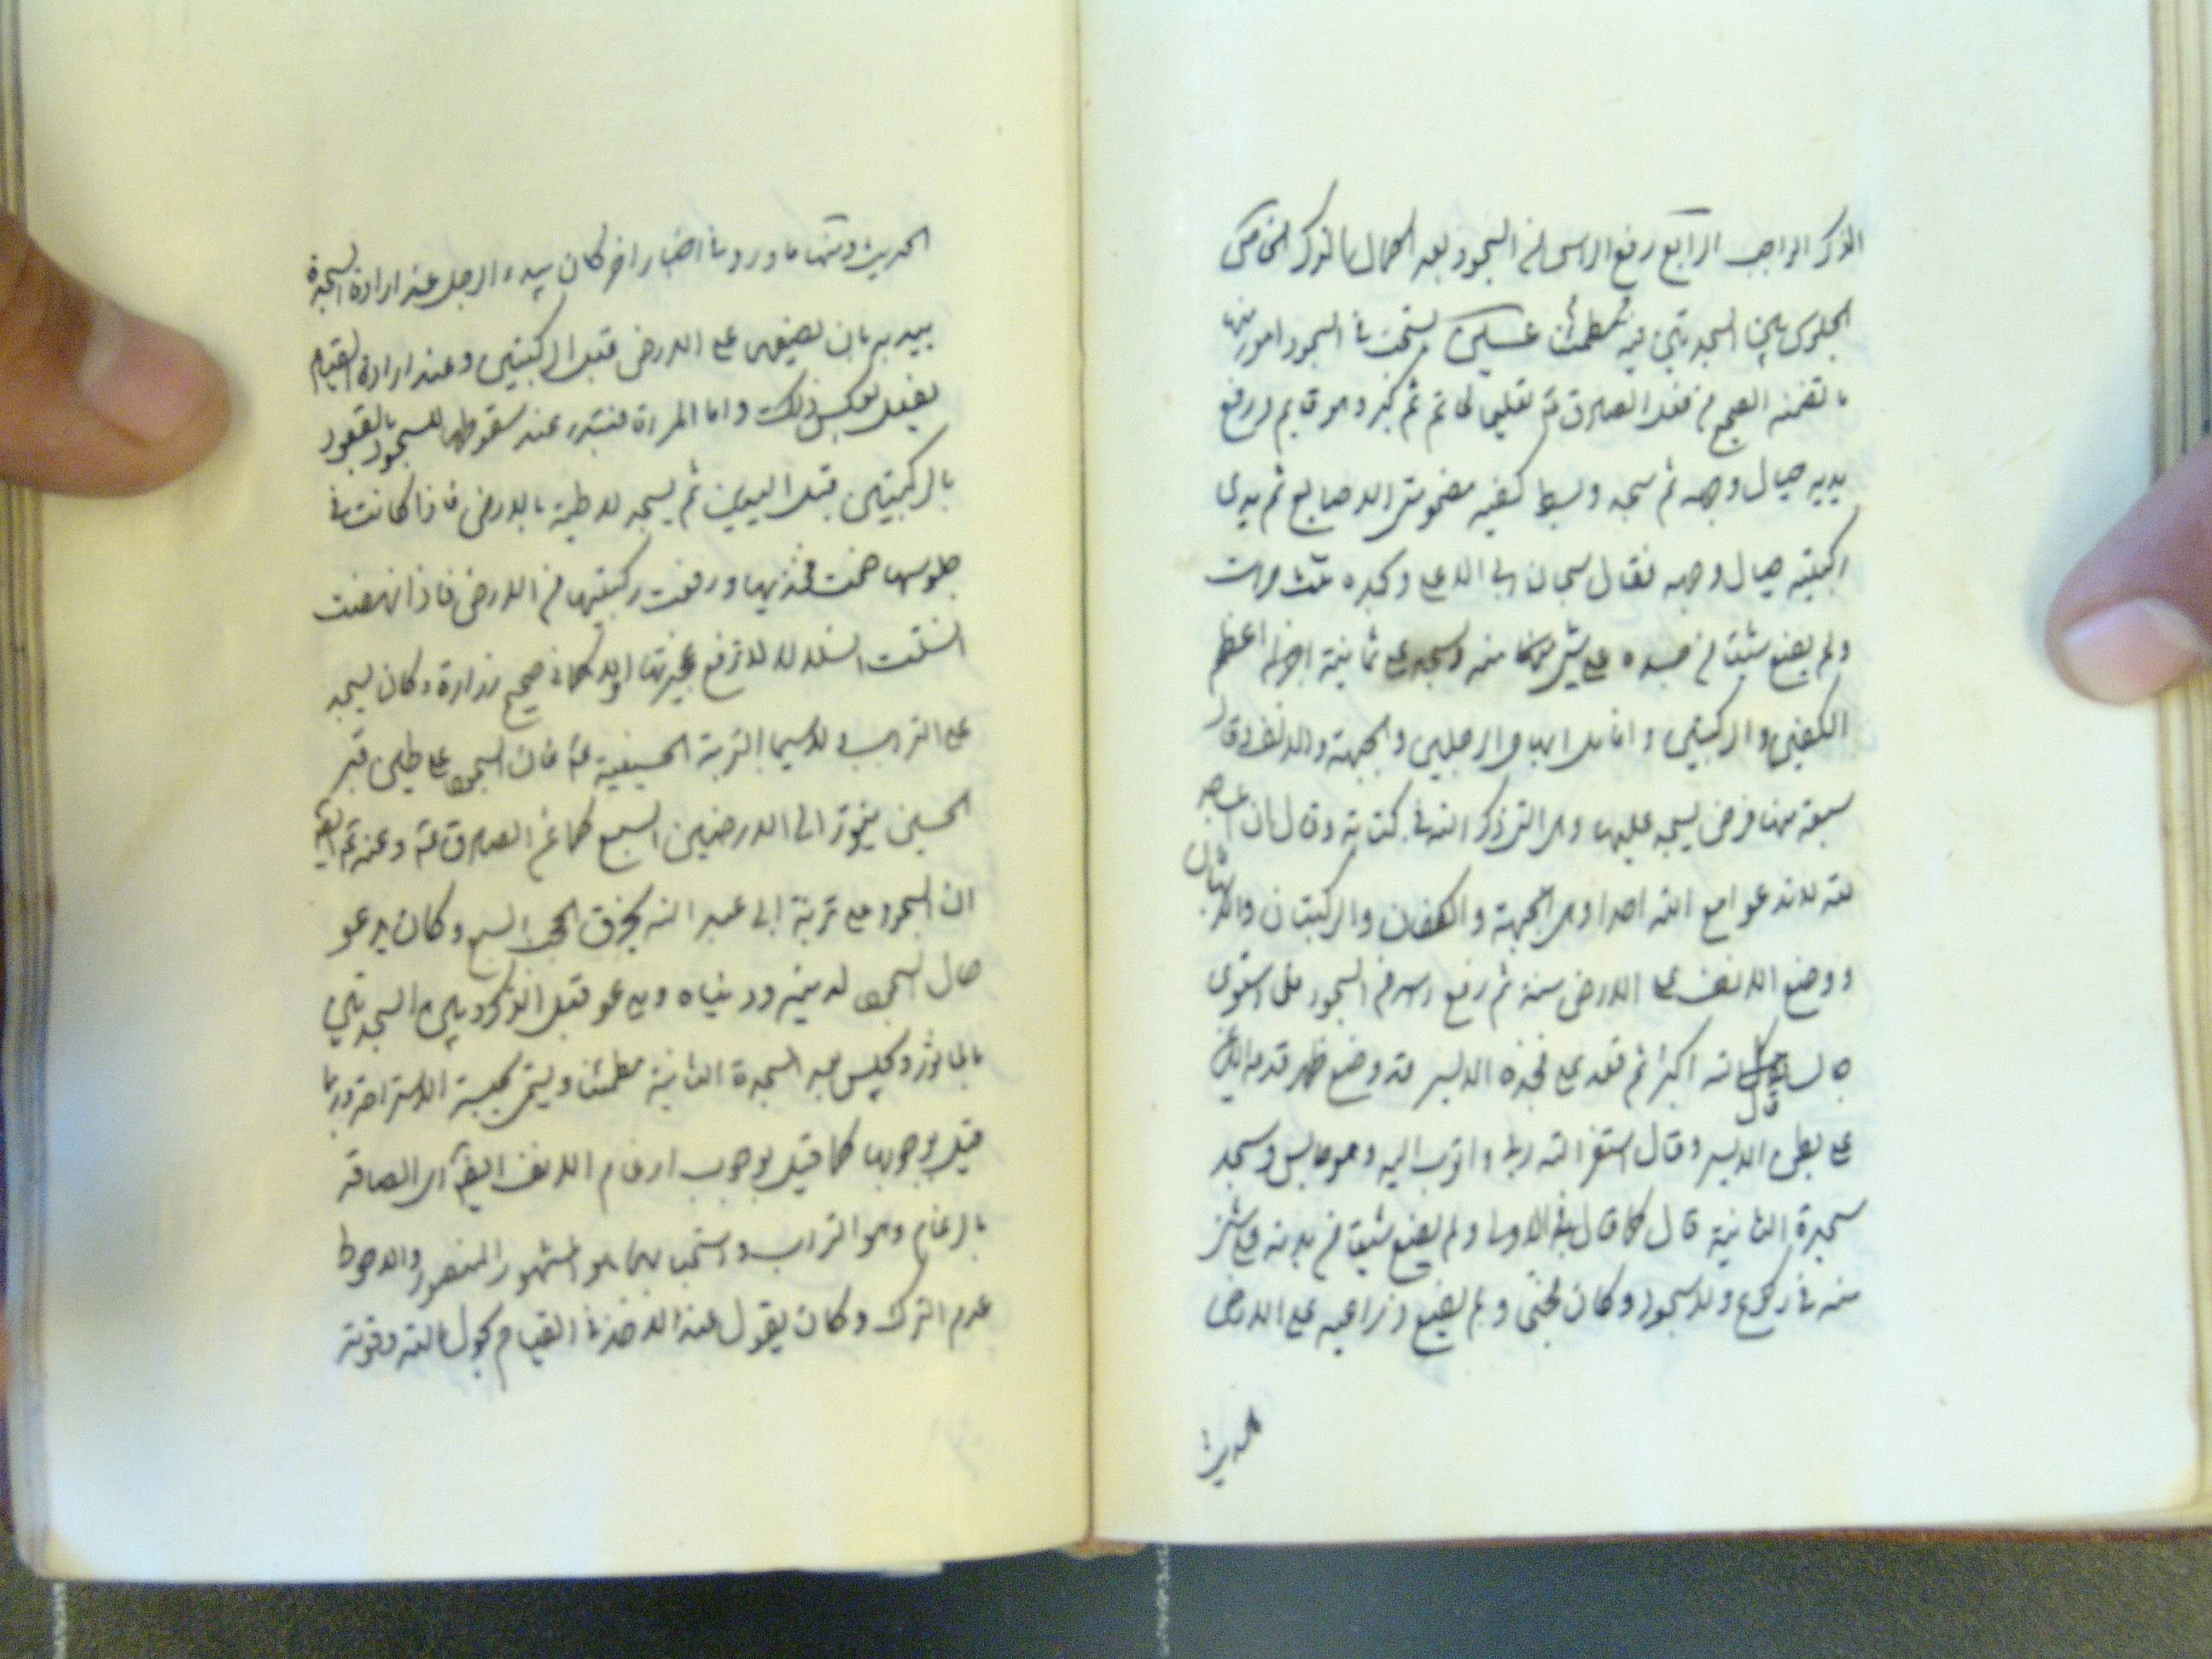 الذكر الواجب الرابع رفع الراس من السجود بعد اكمال الذكر الخامس
الجلوس بين السجدتين فيه مطمئنا يستحب في السجود امور منها
ما تضمنه الصحيح من فعل الصادق ع تعليما لحماد ثم كبر وهو قايم ورفع
يديه حيال وجهه ثم سجد وبسط كفيه مضمومتى الاصابع ثم يدى
ركبتيه حيال وجهه فقال سبحان ربى الاعلى وبحمده ثلث مرات
ولم يضع شيئا من جسده على شئ منه وسجد على ثمانية اعظم
الكفين والركبتين وانامل ابهامى الرجلين والجبهة والانف وقال
سبعة منها فرض يسجد عليها وهى التى ذكر الله فى كتابه وقال ان المساجد
لله فلا تدعوا مع الله احدا وهى الجبهة والكفان والركبتان والابهامان
ووضع الانف على الارض سنة ثم رفع راسه من السجود فلما استوى
جالسا قال الله اكبر ثم قعد على فخذه الايسر قد وضع ظهر قدمه الايمن
على بطن الايسر وقال استغفر الله ربى واتوب اليه وهو جالس وسجد
سجدة الثانية قال كما قال فى الاولى ولم يضع شيئا من بدنه على شئ
منه فى ركوع ولا سجود وكان مجنحى ولم يضع ذراعيه على الارض
الحديث
الحديث ومنها ما ورد فى اخبار اخر كان يبدء الرجل عند ارادة السجدة
بيديه بان يضعهما على الارض قبل الركبتين وعند ارادة القيام
يفعل بعكس ذلك واما المراة فتبتدء عند سقوطها للسجود بالقعود
بالركبتين قبل اليدين ثم يسجد لاطية بالارض فاذا كانت فى
جلوسها ضمت فخذيها ورفعت ركبتيها من الارض فاذا نهضت
انسلت انسلالا لا ترفع عجيزتها اولا كما فى صحيح زرارة وكان يسجد
على التراب لاسيما التربة الحسينية ع فان السجود على طين قبر
الحسين ينور الى الارضين السبع كما عن الصادق ع وعنه ع ايضا
ان السجود على تربة ابى عبد الله يخرق الحجب السبع وكان يدعو
حال السجود لدينه ودنياه ويدعو قبل الذكر وبين السجدتين
بالماثور ويجلس بعد السجدة الثانية مطمئنا ويسمى بجلسة الاستراحة وربما
قيل بوجوبها كما قيل بوجوب ارغام الانف ايضا اى الصاقه
بالرغام وهو التراب واستحبابهما هو المشهور المنصور والاحوط
عدم الترك وكان يقول عند الاخذ فى القيام بحول الله وقوته